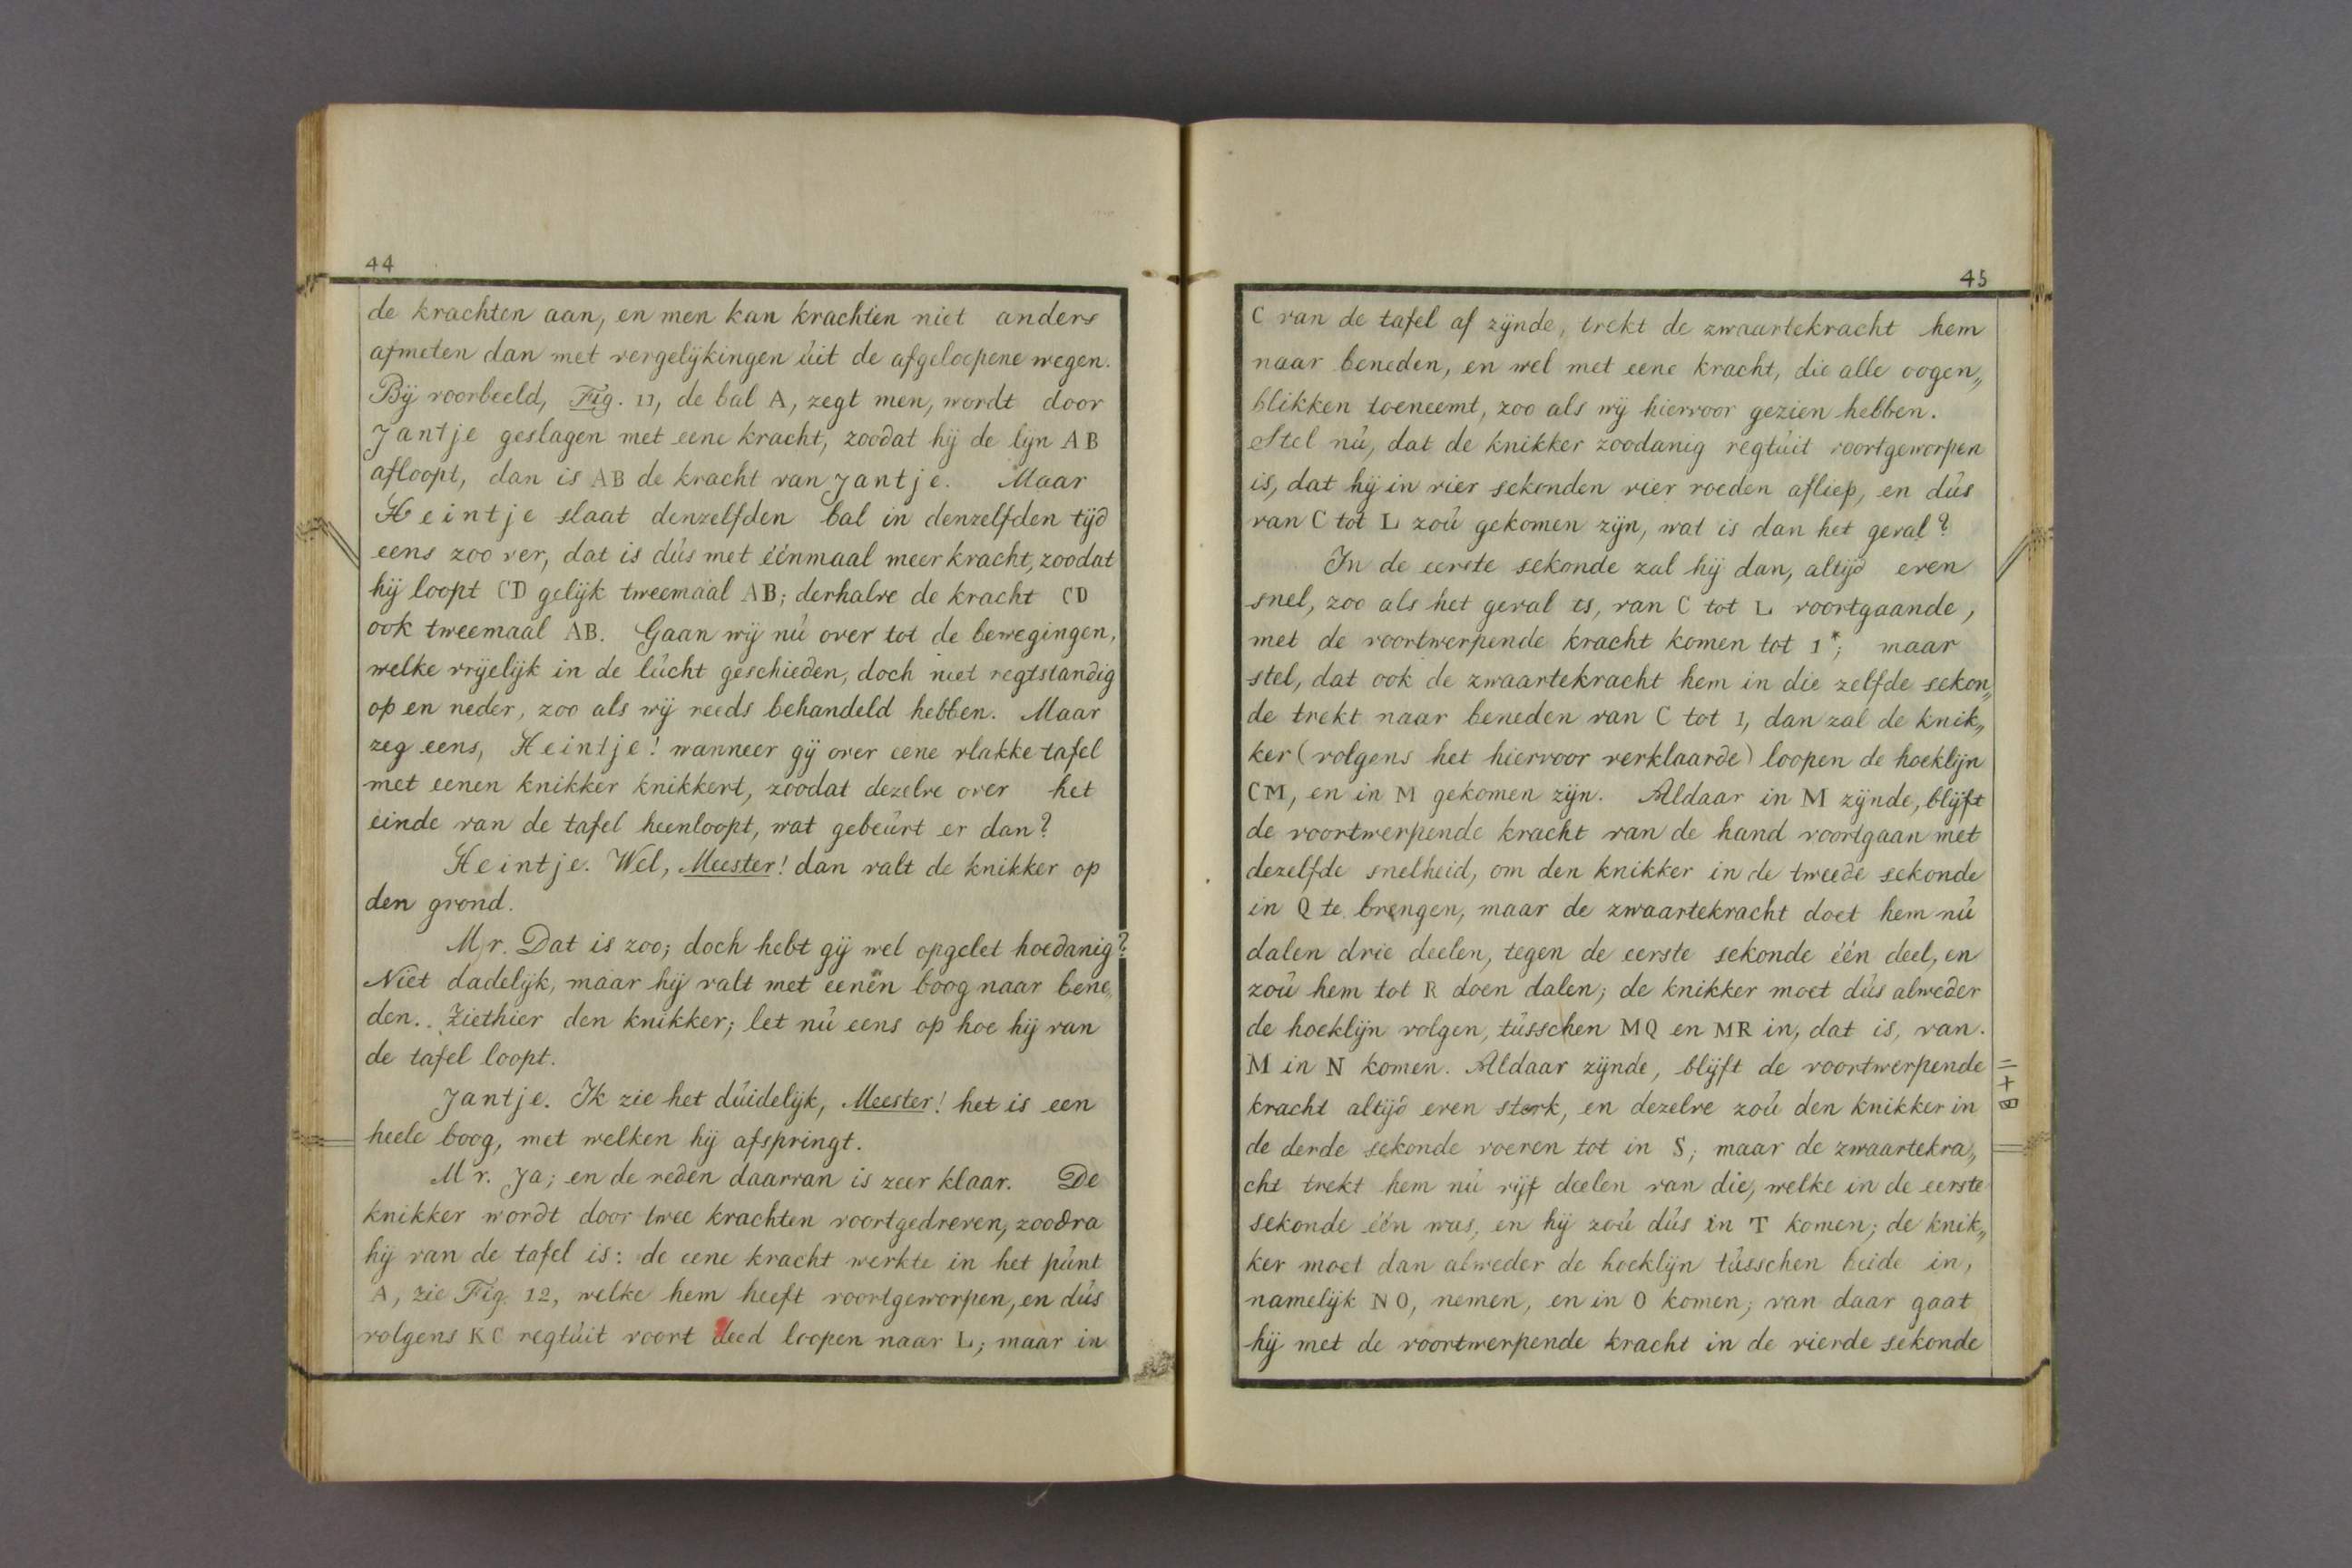 44
de krachten aan, en men kan krachten niet anders
afmeten dan met vergelijkingen uit de afgeloopene wegen.
Bij voorbeeld, Fig. 11, de bal A, zegt men, wordt door
Jantje geslagen met eene kracht, zoodat hij de lijn AB
afloopt, dan is AB de kracht van Jantje. Maar
Heintje slaat denzelfden bal in denzelfden tijd
eens zoo ver, dat is dus met éénmaal meer kracht, zoodat
hij loopt CD gelijk tweemaal AB; derhalve de kracht CD
ook tweemaal AB. Gaan wij nu over tot de bewegingen,
welke vrijelijk in de lucht geschieden, doch niet regtstandig
op en neder, zoo als wij reeds behandeld hebben. Maar
zeg eens, Heintje! wanneer gij over eene vlakke tafel
met eenen knikker knikkert, zoodat dezelve over het
einde van de tafel heenloopt, wat gebeurt er dan?
Heintje. Wel, Meester! dan valt de knikker op
den grond.
Mr. Dat is zoo; doch hebt gij wel opgelet hoedanig?
Niet dadelijk, maar hij valt met eenen boog naar bene„
den.. Ziethier den knikker; let nu eens op hoe hij van
de tafel loopt.
Jantje. Ik zie het duidelijk, Meester! het is een
heele boog, met welken hij afspringt.
Mr. Ja; en de reden daarvan is zeer klaar. De
knikker wordt door twee krachten voortgedreven, zoodra
hij van de tafel is: de eene kracht werkte in het punt
A, zie Fig. 12, welke hem heeft voortgeworpen, en dus
volgens KC regtuit voort deed loopen naar L; maar in
45
C van de tafel af zijnde, trekt de zwaartekracht hem
naar beneden, en wel met eene kracht, die alle oogen„
blikken toeneemt, zoo als wij hiervoor gezien hebben.
Stel nu, dat de knikker zoodanig regtuit voortgeworpen
is, dat hij in vier sekonden vier roeden afliep, en dus
van C tot L zou gekomen zijn, wat is dan het geval?
In de eerste sekonde zal hij dan, altijd even
snel, zoo als het geval is, van C tot L voortgaande,
met de voortwerpende kracht komen tot 1*; maar
stel, dat ook de zwaartekracht hem in die zelfde sekon„
de trekt naar beneden van C tot 1, dan zal de knik„
ker (volgens het hiervoor verklaarde) loopen de hoeklijn
CM, en in M gekomen zijn. Aldaar in M zijnde, blijft
de voortwerpende kracht van de hand voortgaan met
dezelfde snelheid, om den knikker in de tweede sekonde
in Q te brengen, maar de zwaartekracht doet hem nu
dalen drie deelen, tegen de eerste sekonde één deel, en
zou hem tot R doen dalen; de knikker moet dus alweder
de hoeklijn volgen, tusschen MQ en MR in, dat is, van.
M in N komen. Aldaar zijnde, blijft de voortwerpende
kracht altijd even sterk, en dezelve zou den knikker in
de derde sekonde voeren tot in S; maar de zwaartekra„
cht trekt hem nu vijf deelen van die, welke in de eerste
sekonde één was, en hij zou dus in T komen; de knik„
ker moet dan alweder de hoeklijn tusschen beide in,
namelijk NO, nemen, en in O komen; van daar gaat
hij met de voortwerpende kracht in de vierde sekonde